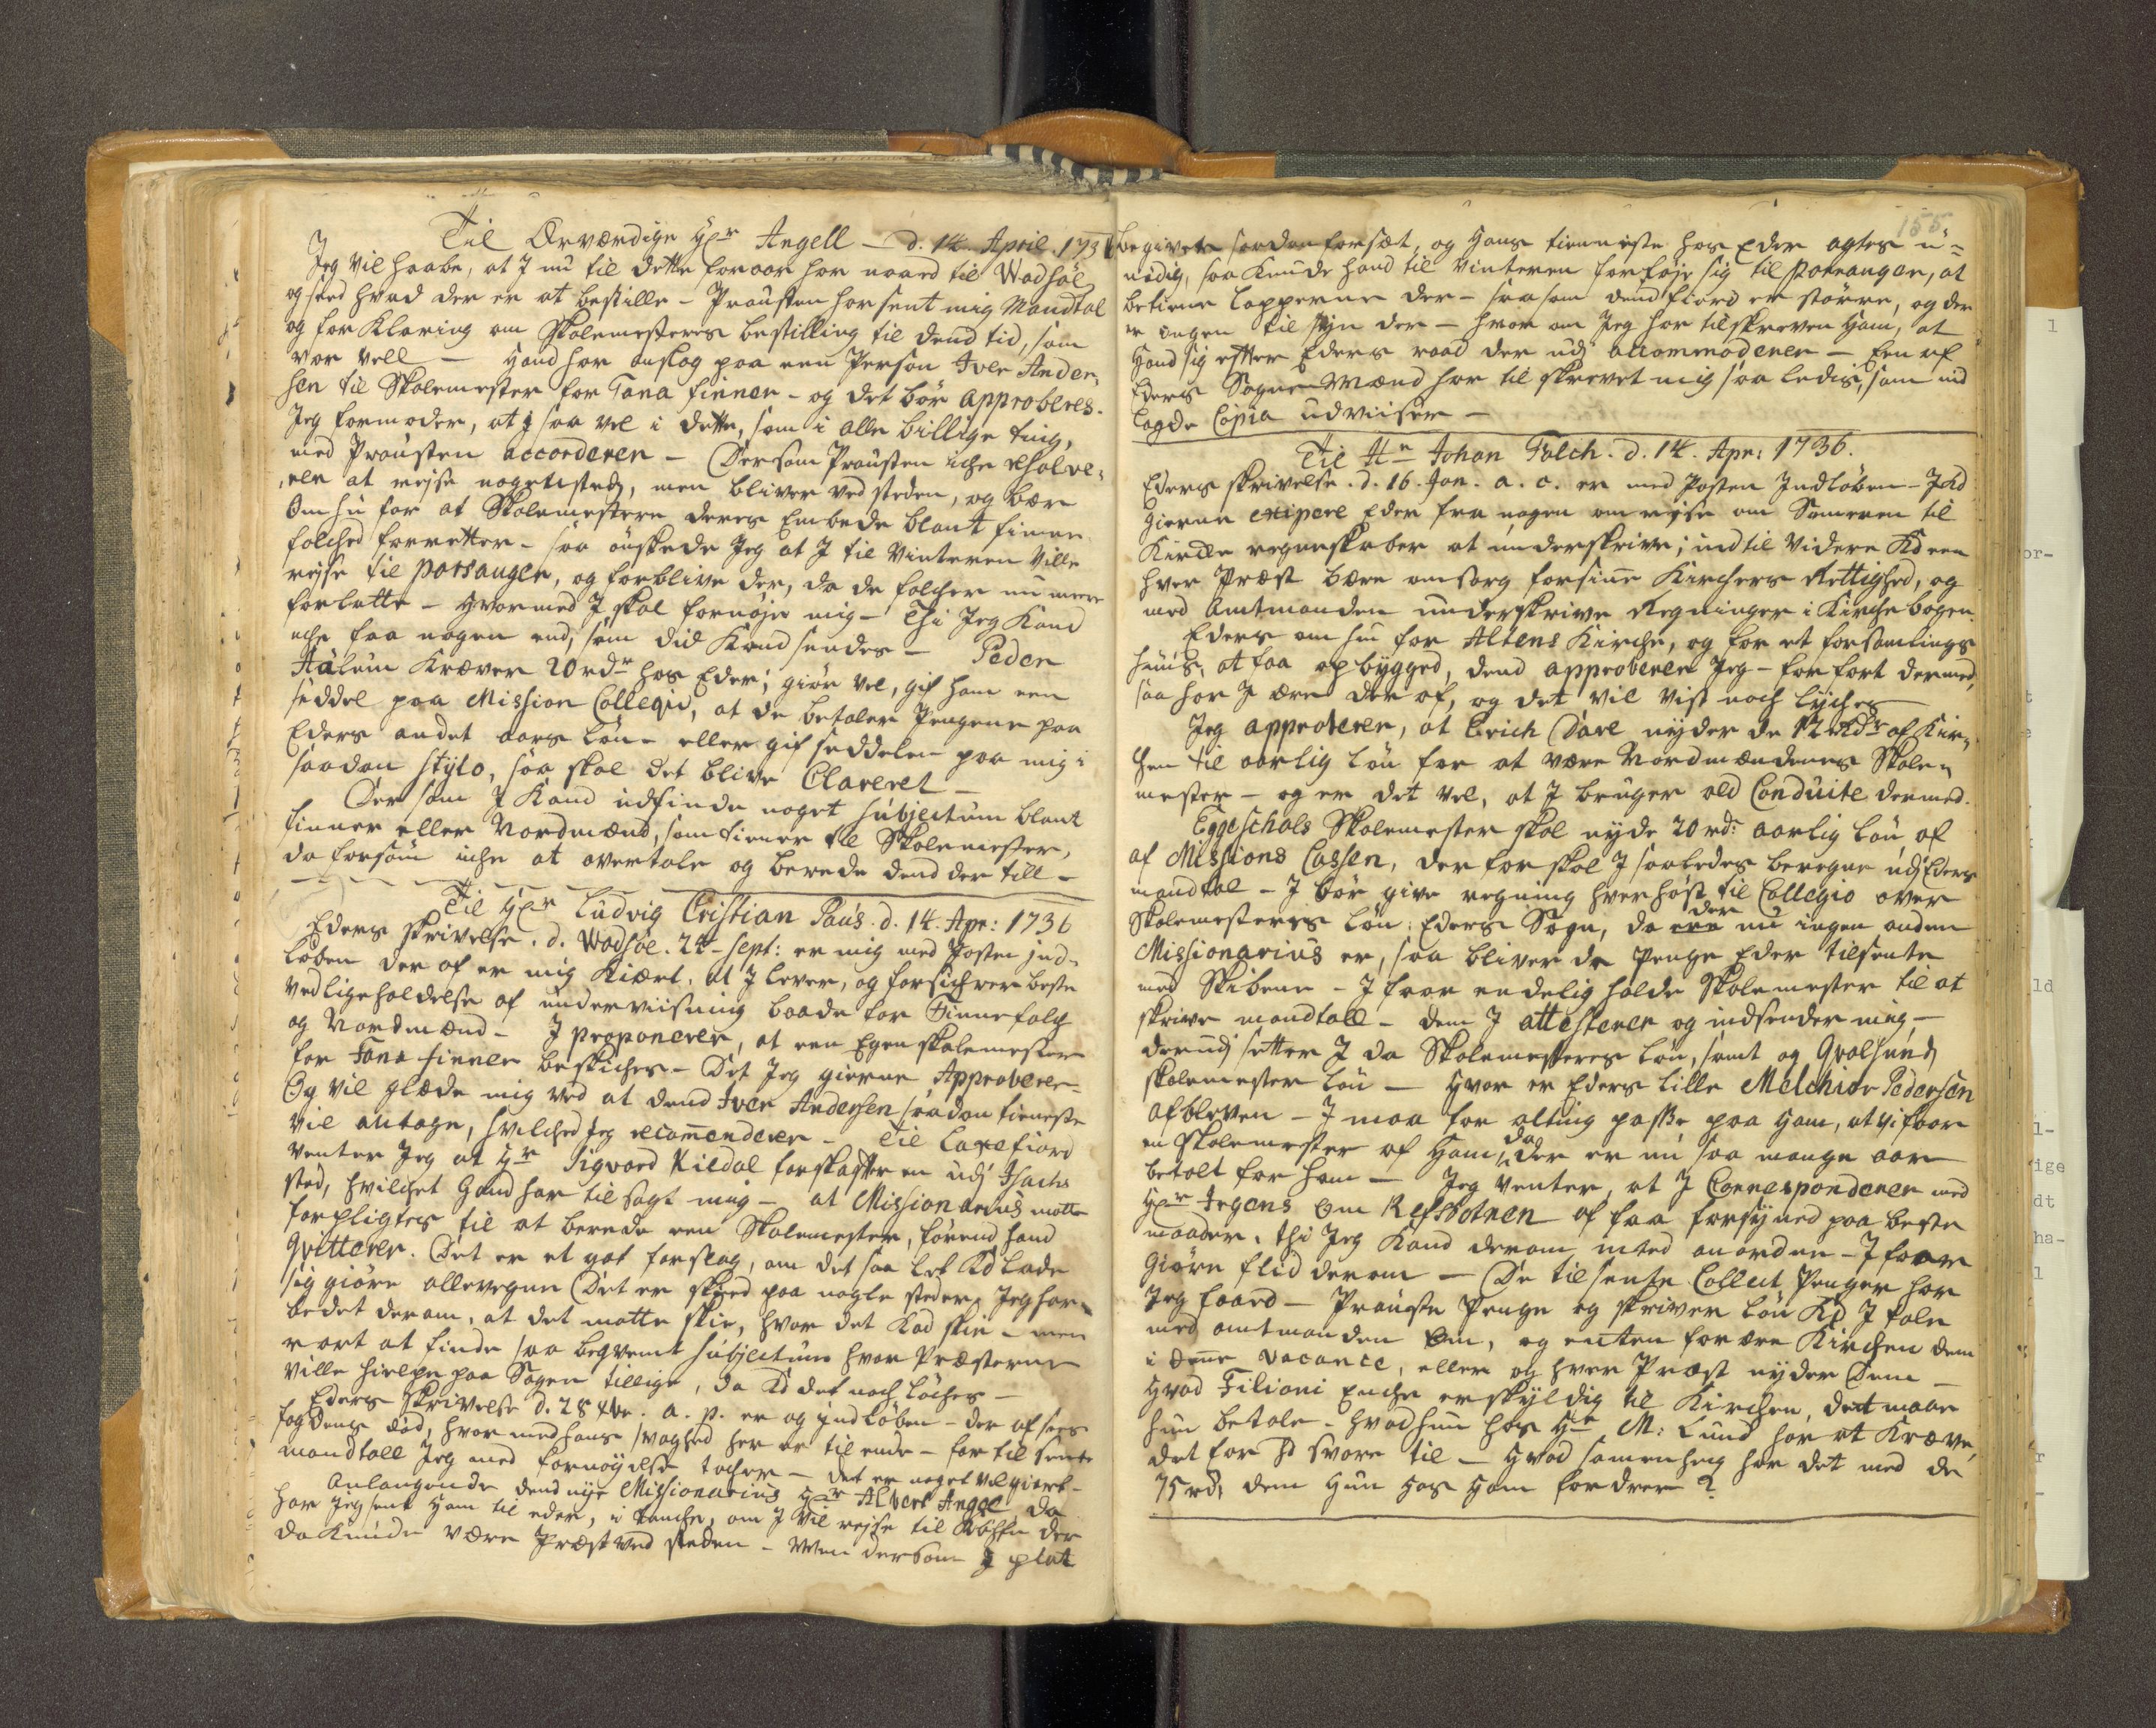 Til Ærværdige Hr Angell – d. 14. April 1736
Jeg vil haabe, at I nu til dette foraar har naaed til Wadsøe
og seed hvad der er at bestille – Prousten har sent mig Mandtal
og forklaring om Skolemesteres bestilling til dend tid, som
var vell – Hand har anslag paa een Person Iver Ander,
sen til Skolemester for Tana finner – og det bør approberes.
Jeg formoder, at I saa vel i dette, som i alle billige ting,
med Prousten accorderer – Dersom Prousten iche resolve,
,rer at rejse nogensteds, men bliver ved steden, og bær
Omhu for at Skolemestere deres Embede blant finne
folched forretter – saa ønskede Jeg at I til Vinteren ville
rejse til Porsanger, og forblive der, da de folcher nu mere
forlatte – Hvormed I skal fornøje mig – Thi Jeg Kand
iche faa nogen and, som did Kand sendes – Peder
Hålum Kræver 20 rdr hos Eder; giør vel, gif ham een
seddel paa Mission Collegio, at de betaler Pengene paa
Eders andet aars løn – eller gif seddelen paa mig i
saadan stylo, saa skal det blive Clareret –
Der som I Kand udfinde noget subjectum blant
finner eller Nordmænd, som tiener til Skolemester,
da forsøm iche at overtale og berede dend der till –
Til Hr Ludvig Cristian Paus. d. 14. Apr: 1736
Eders skrivelse. d. Wadsøe. 24 – sept: er mig med Posten ind-
løben der af er mig Kiært, at I lever, og forsichrer beste
vedligeholdelse af underviisning baade for Finnefolch
og Nordmænd – I proponerer, at een Egen skolemester
for Tana finner beskiches – Det Jeg gierne Approberer –
Og vil glæde mig ved at dend Iver Andersen saadan tieneste
vil antage, hvilched Jeg recommenderer – Til Laxefiord
venter Jeg at Hr Sigvard Kildal forskaffer en udj Isachs
sted, hvilchet Hand har til sagt mig – at Missionarius motte
forpligtes til at berede een Skolemester, førend hand
qvitterer. Det er et got forslag, om det saa let Kd lade
sig giøre allevegne Det er skeed paa nogle steder, Jeg har
bedet derom, at det motte skie, hvor det Kand skie – men
rart at finde saa beqvemt subjectum hvor Præsterne
ville hielpe paa Sagen tillige, da Kd det noch løches –
Eders skrivelse d. 28 xbr. a. p. er og indløben – der af sees
fogdens død, hvor med hans svaghed her er til ende – for til sente
mandtall Jeg med fornøyelse tacher – det er noget vel giort –
Anlangende dend nye Missionarius Hr Albert Angel da
har Jeg sent ham til eder, i tanche, om I vil rejse til da
da Kunde være Præst ved steden – Men dersom I plat
155
begiver saadan forsæt, og Hans tienneste hos Eder agtes u=
nødig, saa Kunde hand til vinteren forføje sig til Porsanger, at
betiene Lapperne der – saasom dend fiord er større, og der
er ingen til syn der – hvor om Jeg har tilskreven ham, at
Hand sig efter Eders raad der udj accommoderer – Een af
Eders Sogne Mænd har til skrevet mig saa ledis, som ind
lagde Copia udviiser –
Til Hr Johan Falch. d. 14. Apr: 1736.
Eders skrivelse. d. 16. Jan. a. c. er med Posten Indløben – J Kd
gierne exipere Eder fra nogen omrejse om Someren til
Kirche regnskaber at underskrive; indtil videre Kd een
hver Præst bære omsorg forsinne Kirchers Rettighed, og
med Amtmanden underskrive Regninger i Kirche bogen.
Eders om hu for Altens Kirche, og for et forsamlings
huus, at faa opbygged, dend approberer Jeg – far fort dermed,
saa har I ære der af, og det vil vist noch lyches
Jeg approberer, at Erich Dare nyder de 12 rdr af Kir,
chen til aarlig løn for at være Nordmændenes Skole,
mester – og er det vel, at I bruger ald Conduite dermed.
Eggeschals Skolemester skal nyde 20 rdr aarlig løn af
af Missions Cassen, der for skal I saaledes beregne udj Eders
mandtal – I bør give regning hver høst til Collegio over
Skolemesteres løn i Eders Sogn, da der nu ingen anden
Missionarius er, saa bliver de Penge Eder tilsente
med Skibene – I faar endelig holde Skolemester til at
skrive mandtall – dem I attesterer og indsender mig –
derudj setter I da Skolemesteres løn, samt og Qvalsunds
skolemester løn – Hvor er Eders lille Melchior Pedersen
afbleven – I maa for alting passe paa ham, at vi faar
en Skolemester af ham, da der er nu saa mange aar
betalt for ham – Jeg venter, at I Corresponderer med
Hr Irgens om Refsbotnen at faa forsyned paa beste
maader, thi Jeg Kand derom inted anordne – I faar
giøre flid derom – De tilsente Collect Penger har
Jeg faaed – Prouste Penge og skriver løn Kd I tale
med amtmanden om, og enten forære Kirchen dem
i denne vacance, eller og hver Præst nyder Dem –
hvad Filioni Enche er skyldig til Kirchen, dett maae
hun betale – hvad hun hos Hr M: Lund har at Kræve,
det far hd svare til – Hvad samenheng har det med de
75 rdr, dem hun hos ham fordrer?